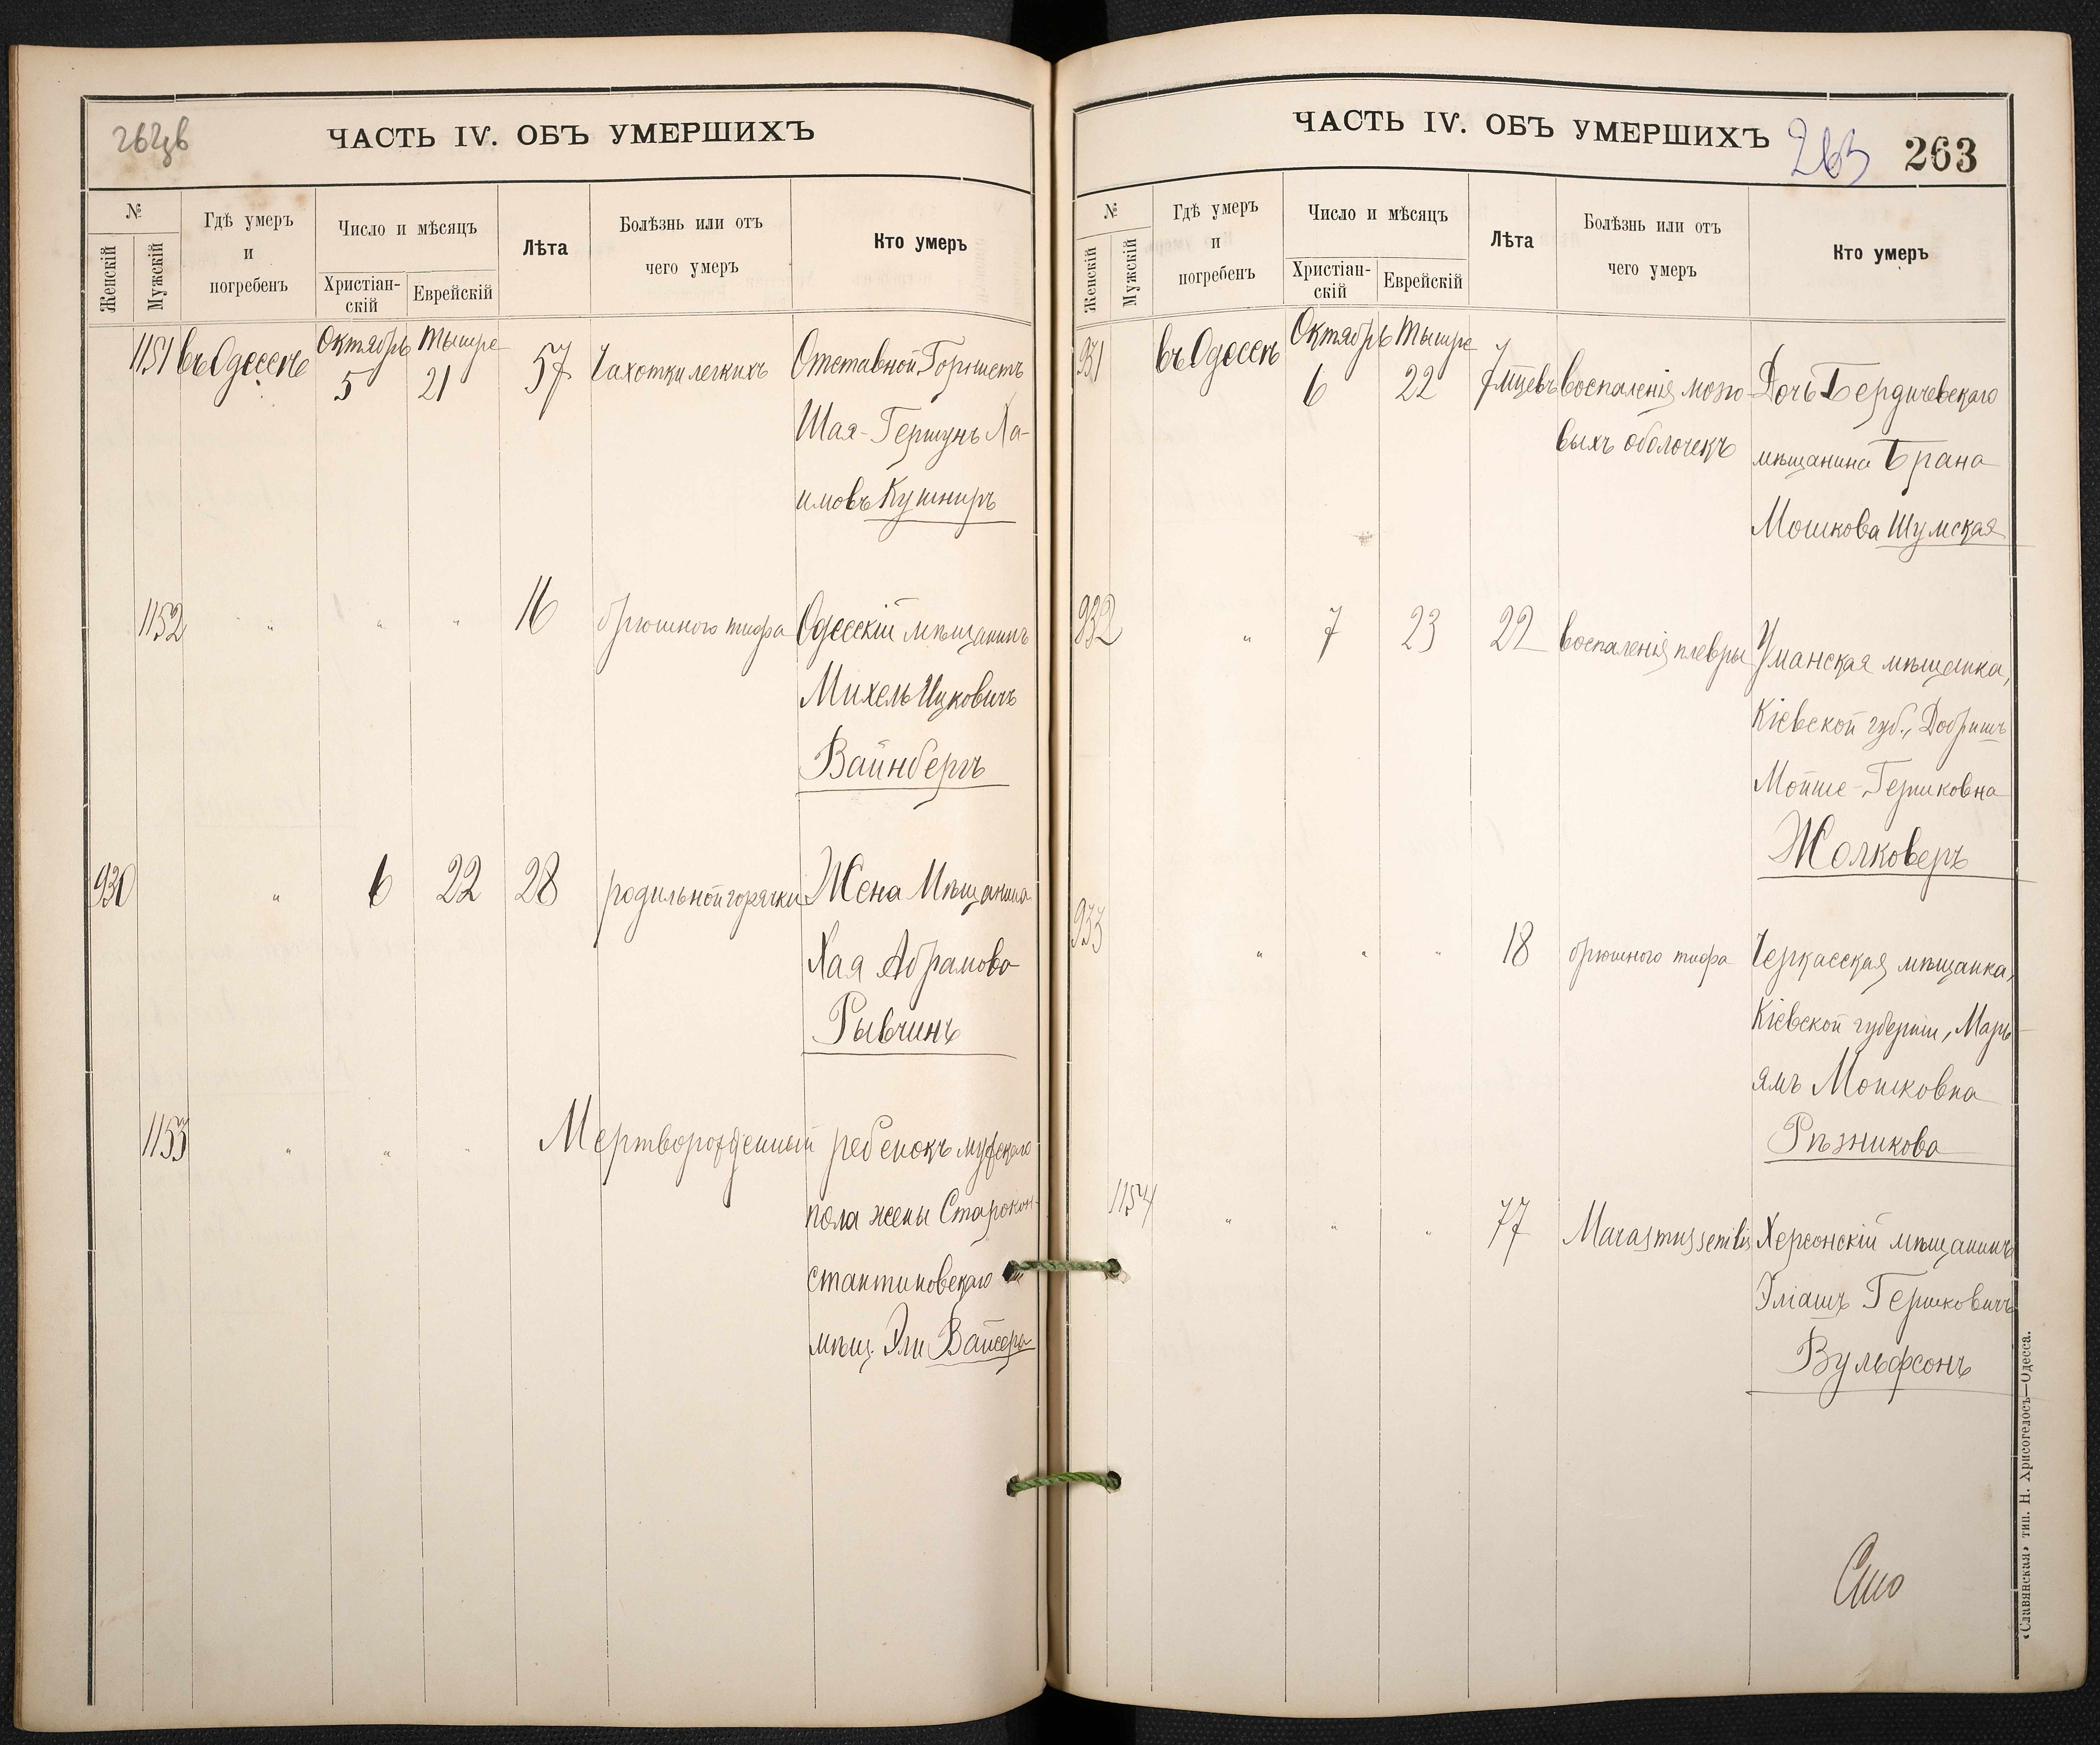 ЧАСТЬ IV. ОБЪ УМЕРШИХЪ
№
Женскій
Мужскій
Гдѣ умеръ
и
погребенъ
Число и мѣсяцъ
Христіан-
скій
Еврейскій
Лѣта
Болѣзнь или отъ
чего умеръ
Кто умеръ
1151 въ Одессѣ Октябрь 5 Тышре 21 57 Чахотки легкихъ Отставной Горнистъ
Шая-Гершунъ Ха-
имовъ Кушниръ
1152 " " " 16 брюшного тифа Одесскій мѣщанинъ
Михель Ицковичъ
Вайнбергъ
930 " 6 22 28 родильной горячки Жена Мѣщанина
Хая Абрамова
Рывчинъ
1153 " " " Мертворожденный ребенокъ мужскаго
пола жены Старокон-
стантиновскаго
мѣщ. Эли Вайсера
ЧАСТЬ IV. ОБЪ УМЕРШИХЪ 263 263
№
Женскій
Мужскій
Гдѣ умеръ
и
погребенъ
Число и мѣсяцъ
Христіан-
скій
Еврейскій
Лѣта
Болѣзнь или отъ
чего умеръ
Кто умеръ
931 въ Одессѣ Октябрь 6 Тышре 22 7 мцевъ воспаленія мозго- Дочь Бердичевскаго
выхъ оболочекъ мѣщанина Брана
Мошкова Шумская
932 " 7 23 22 воспаленія плевры Уманская мѣщанка,
Кіевской губ., Добришъ
Мойше-Гершковна
Жолковеръ
933 " " " 18 брюшного тифа Черкасская мѣщанка,
Кіевской губерніи, Марь-
ямъ Мошковна
Рѣзникова
1154 " " " 77 Marasmus senilis Херсонскій мѣщанинъ
Эліашъ Гершковичъ
Вульфсонъ
«Славянская» тип. Н. Хрисогелосъ—Одесса.